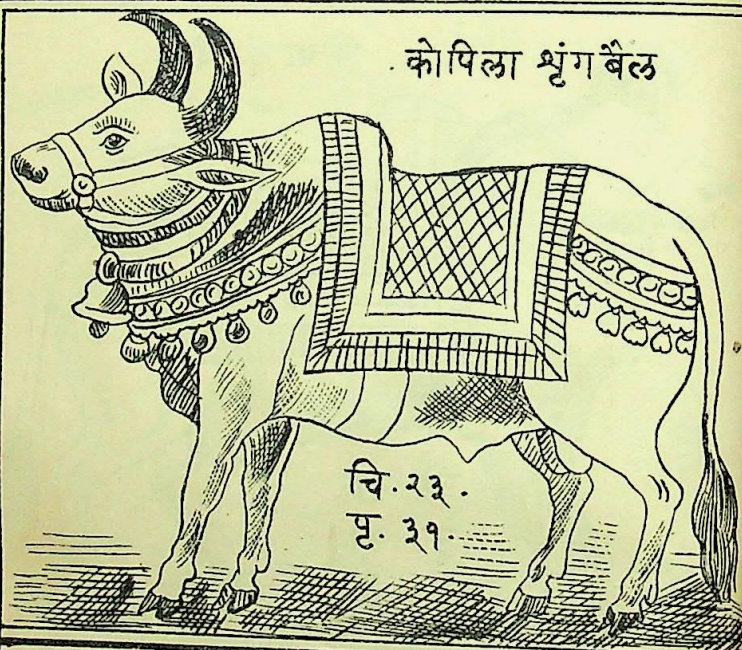 कोपिला शृंग बैल
चि. २३.
पृ. ३१.